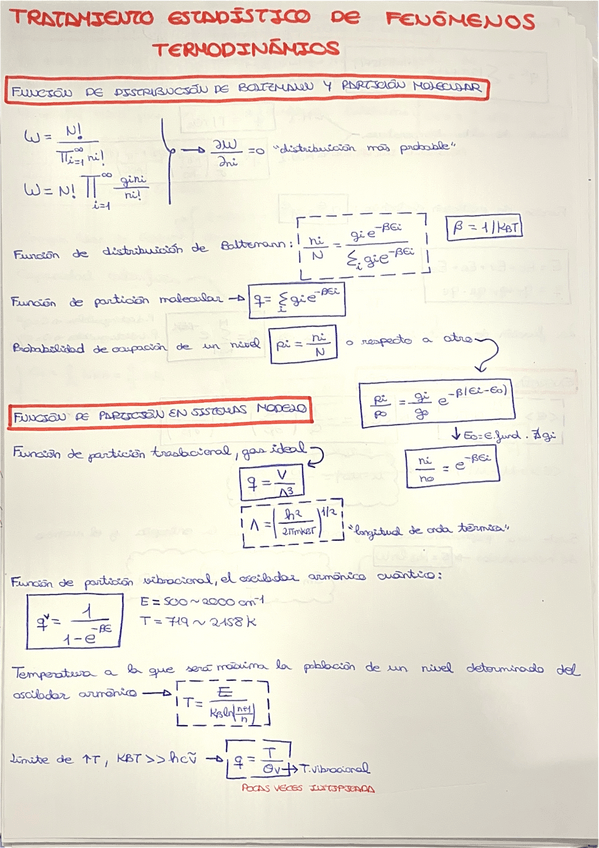 TRATAMIENTO ESTADÍSTICO DE FENÓMENOS
TERMODINÁMIOS
FUNCIÓN DE DISTRIBUCIÓN DE BOLTZMANN Y PARTICIÓN MOLECULAR
W = N! / ∏_{i=1}^∞ ni!
W = N! ∏_{i=1}^∞ gi^{ni} / ni!
→ ∂W/∂ni = 0 "distribuición más probable"
Función de distribuición de Boltzmann: ni/N = gi e^{-βEi} / Σ_i gi e^{-βEi} β = 1/KBT
Función de partición molecular → q = Σ_i gi e^{-βEi}
Probabilidad de ocupación de un nivel pi = ni/N o respecto a otro
pi/p0 = gi/g0 e^{-β(Ei-E0)}
FUNCIÓN DE PARTICIÓN EN SISTEMAS MODELO
↓ E0 = E.fund. ∄ gi
Función de partición traslacional, gas ideal
ni/n0 = e^{-βEi}
q = V/Λ^3
Λ = (h^2 / 2πmKBT)^{1/2} "longitud de onda térmica"
Función de partición vibracional, el oscilador armónico cuántico:
q^v = 1 / (1-e^{-βE})
E = 500 ~ 2000 cm^{-1}
T = 719 ~ 2158 K
Temperatura a la que será máxima la población de un nivel determinado del
oscilador armónico → T = E / (KB ln(n+1/n))
Límite de ↑T, KBT >> hcṽ → q = T/Θv → T.vibracional
POCAS VECES JUSTIFICADA